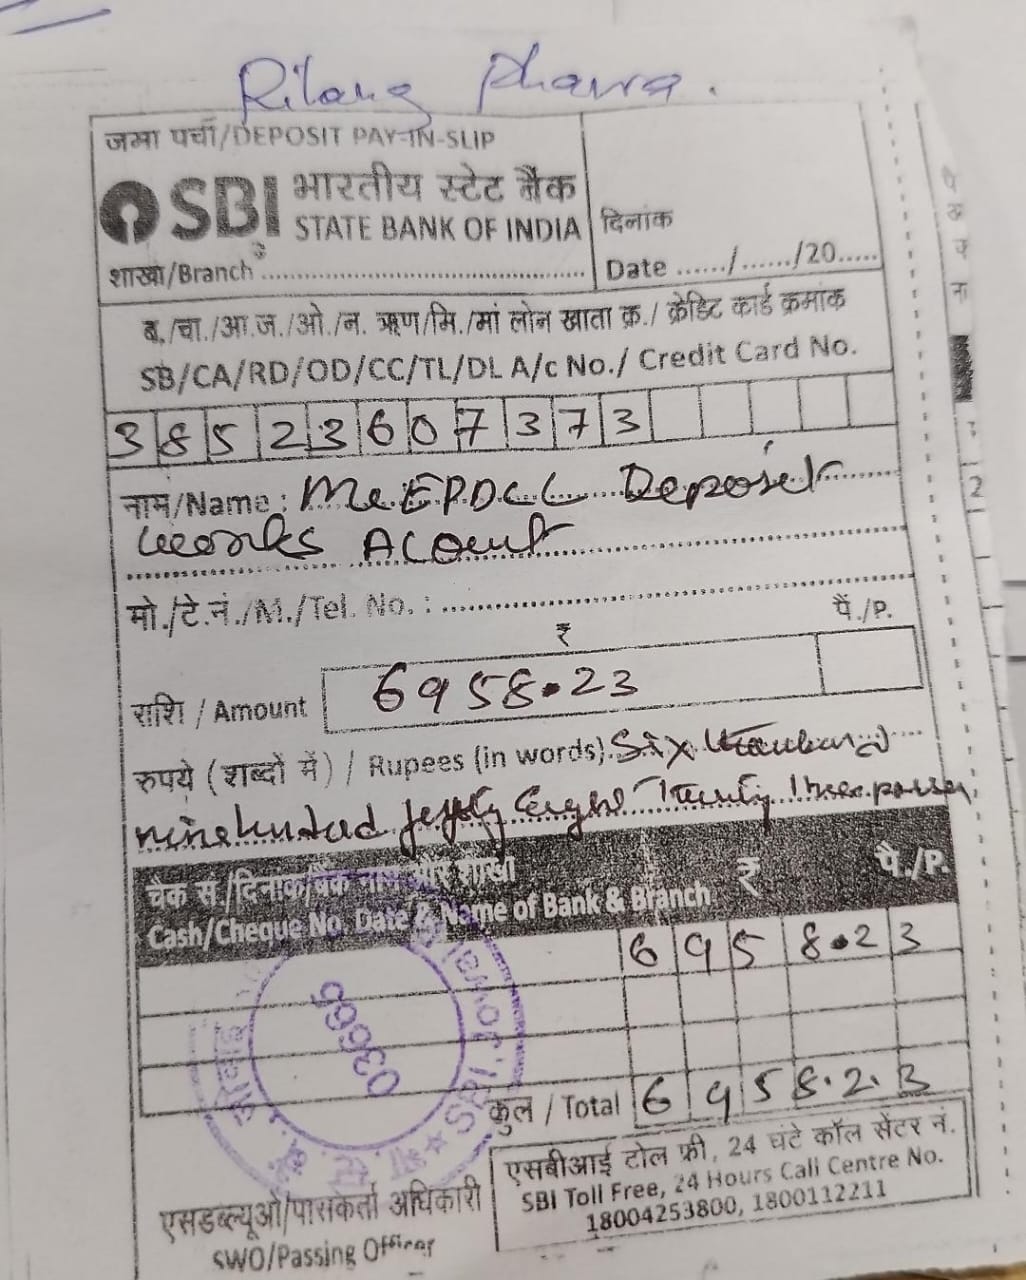 Rilang Dharra.
जमा पर्ची/DEPOSIT PAY-IN-SLIP
SBI भारतीय स्टेट बैंक
STATE BANK OF INDIA
शाखा/Branch
दिनांक
Date ....../....../20.....
ब./चा./आ.ज./ओ./न. ऋण/मि./मां लोन खाता क्र./ क्रेडिट कार्ड क्रमांक
SB/CA/RD/OD/CC/TL/DL A/c No./ Credit Card No.
38523607373
नाम/Name : MeEPDCL Deposit
Works Acount
मो./टे.नं./M./Tel. No. :
₹ पै./P.
राशि / Amount 6958.23
रुपये (शब्दों में) / Rupees (in words) Six thousand
nine hundred fifty eight Twenty three paisa
चेक सं./दिनांक/बैंक नाम और शाखा ₹ पै./P.
Cash/Cheque No. Date & Name of Bank & Branch
6958.23
03666
कुल / Total 6958.23
एसबीआई टोल फ्री, 24 घंटे कॉल सेंटर नं.
SBI Toll Free, 24 Hours Call Centre No.
18004253800, 1800112211
एसडब्ल्यूओ/पासकर्ता अधिकारी
SWO/Passing Officer